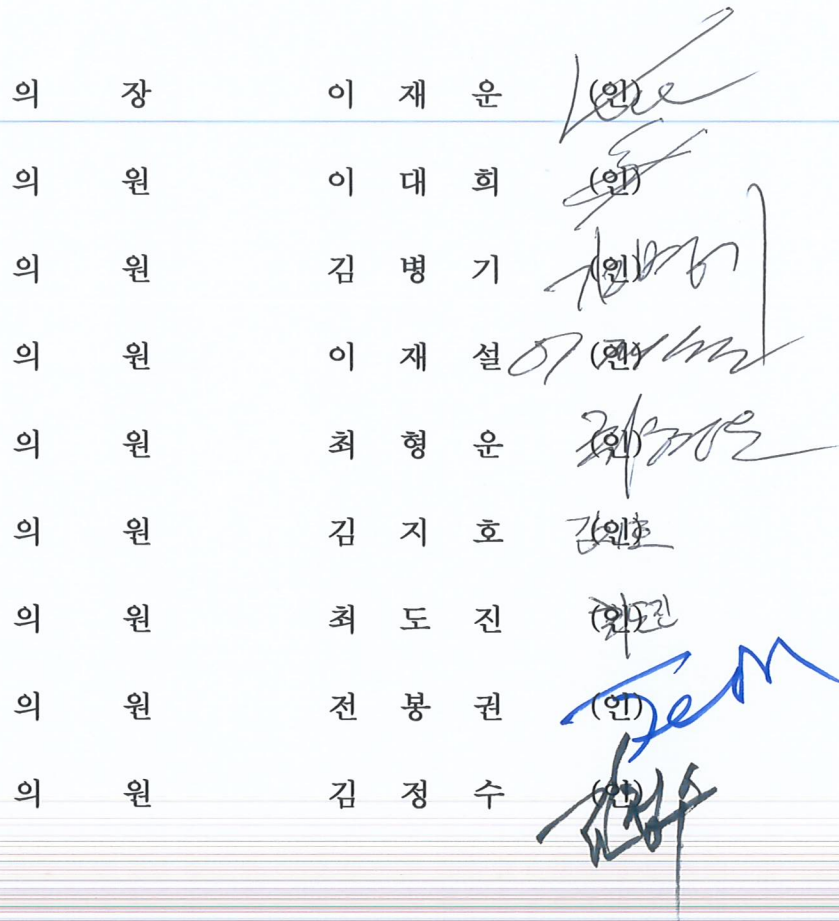 의 장 이 재 운 (인)
의 원 이 대 희 (인)
의 원 김 병 기 (인)
의 원 이 재 설 (인)
의 원 최 형 운 (인)
의 원 김 지 호 (인)
의 원 최 도 진 (인)
의 원 전 봉 권 (인)
의 원 김 정 수 (인)